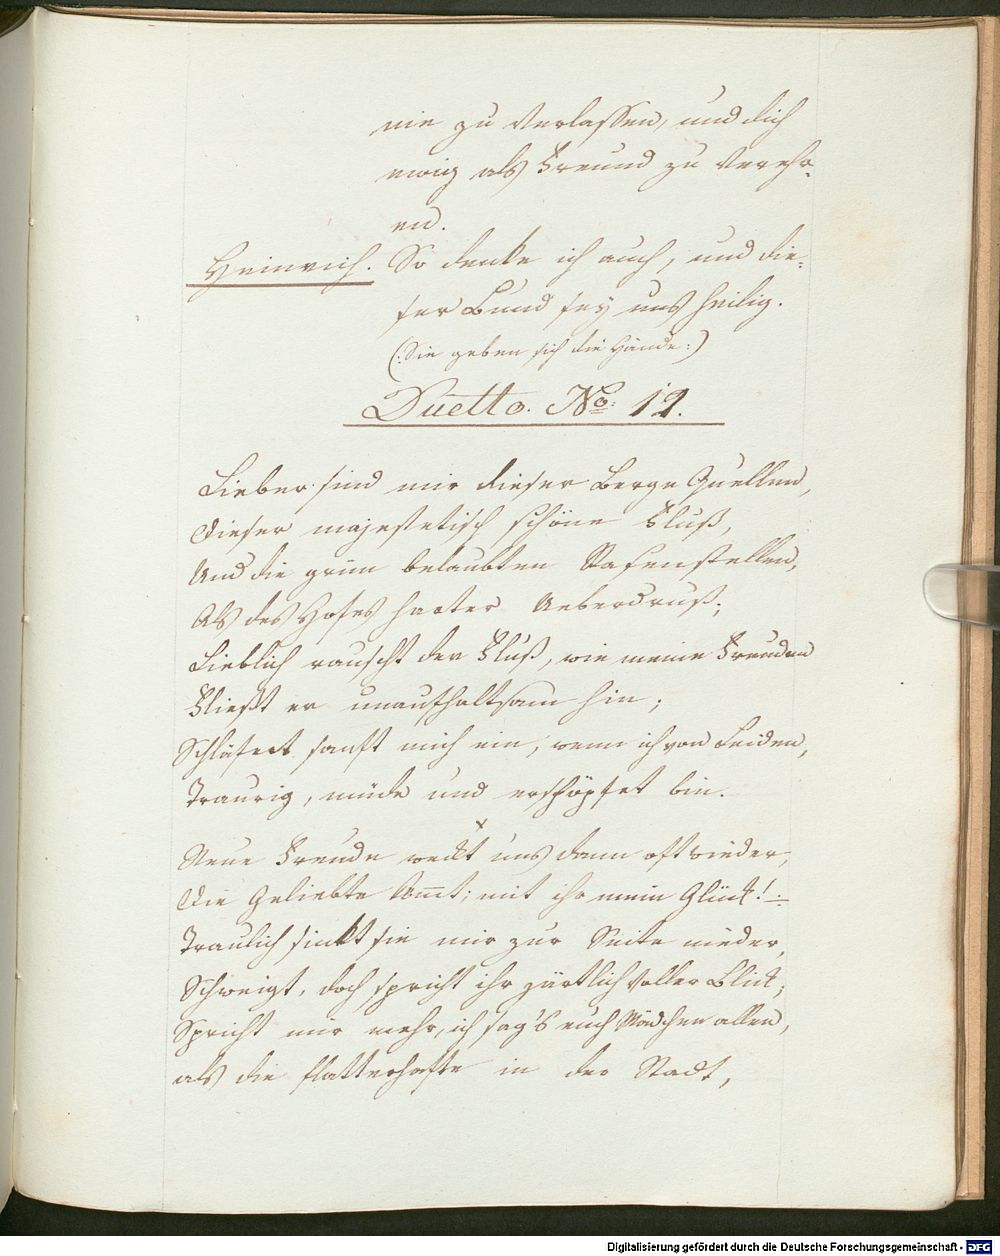 nie zu verlassen, und dich
ewig als Freund zu verehr-
en.
Heinrich. So denke ich auch, und die-
ser Bund sey uns heilig.
(: Sie geben sich die Hände :)
Duetto. No: 12.
Lieber sind mir dieser Berge Quellen,
Dieser majestetisch schöne Fluß,
Und die grün belaubten Rasenstellen,
Als des Hofes harter Ueberdruß;
Lieblich rauscht der Fluß, wie meine Freuden
Fließt er unaufhaltsam hin;
Schläfert sanft mich ein, wenn ich von Leiden,
Traurig, müde und erschöpfet bin.
Neue Freude weckt uns dann oft wieder,
Die Geliebte kom̅t; mit ihr mein Glück!-
Traulich sinkt sie mir zur Seite nieder,
Schweigt, doch spricht ihr zärtlich voller Blick;
Spricht nur mehr, ich sag's euch Mädchen allen,
als die flatterhafte in der Stadt,
Digitalisierung gefördert durch die Deutsche Forschungsgemeinschaft - DFG